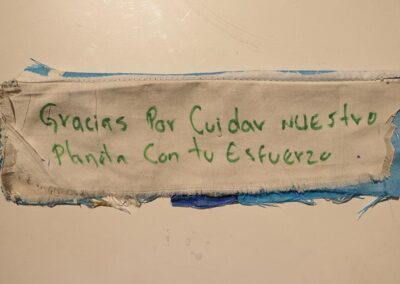 Gracias Por Cuidar NUESTRO
Planeta Con tu Esfuerzo